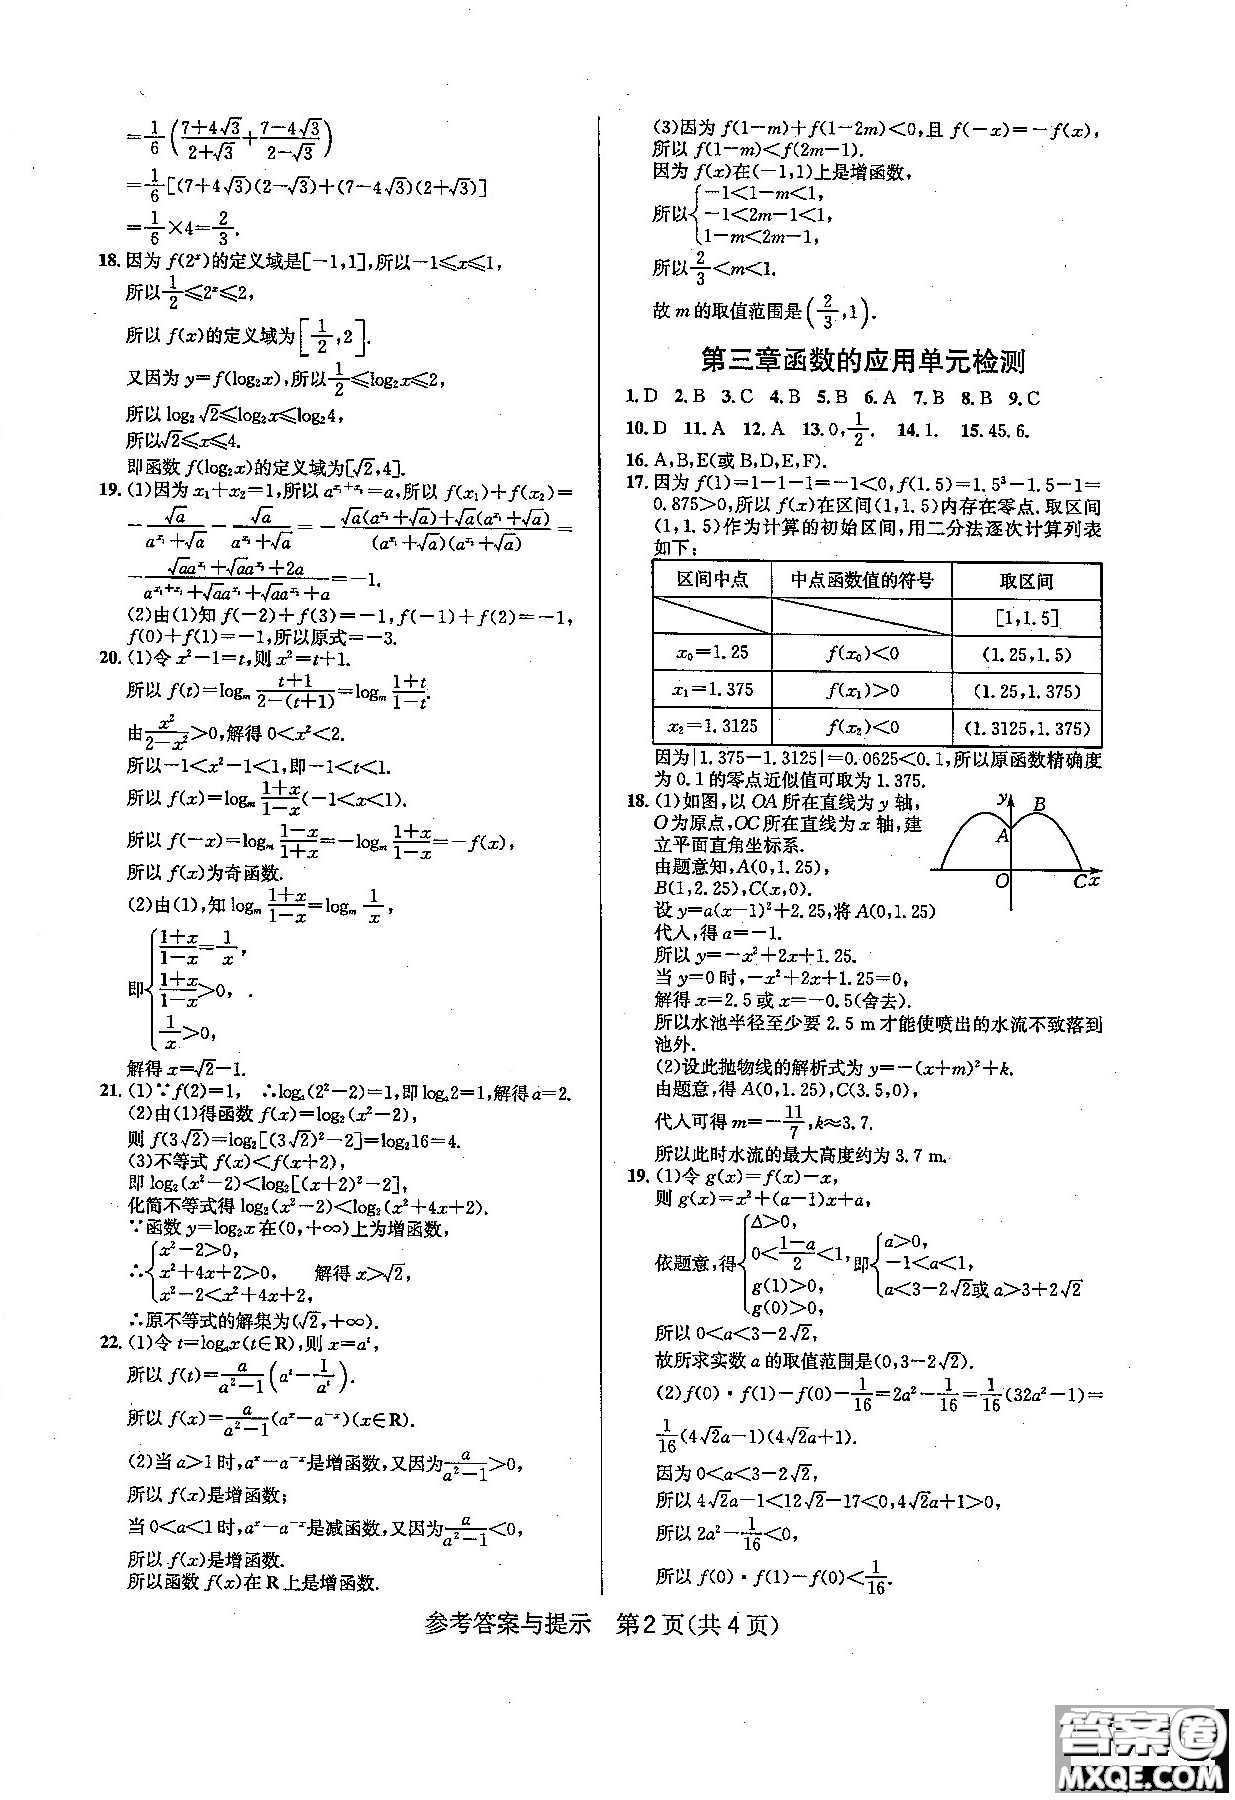 =1/6((7+4√3)/(2+√3)+(7-4√3)/(2-√3))
=1/6[(7+4√3)(2-√3)+(7-4√3)(2+√3)]
=1/6×4=2/3.
18. 因为 f(2^x)的定义域是[-1,1],所以-1⩽x⩽1,
所以1/2⩽2^x⩽2,
所以 f(x)的定义域为[1/2,2].
又因为 y=f(log₂x),所以1/2⩽log₂x⩽2,
所以 log₂√2⩽log₂x⩽log₂4,
所以√2⩽x⩽4.
即函数 f(log₂x)的定义域为[√2,4].
19. (1)因为 x₁+x₂=1,所以 a^(x₁+x₂)=a,所以 f(x₁)+f(x₂)=
-√a/(a^x₁+√a)-√a/(a^x₂+√a)=-(√a(a^x₂+√a)+√a(a^x₁+√a))/((a^x₁+√a)(a^x₂+√a))=
-(√aa^x₁+√aa^x₂+2a)/(a^(x₁+x₂)+√aa^x₁+√aa^x₂+a)=-1.
(2)由(1)知 f(-2)+f(3)=-1,f(-1)+f(2)=-1,
f(0)+f(1)=-1,所以原式=-3.
20. (1)令 x²-1=t,则 x²=t+1.
所以 f(t)=logₘ (t+1)/(2-(t+1))=logₘ (1+t)/(1-t).
由x²/(2-x²)>0,解得 0<x²<2.
所以-1<x²-1<1,即-1<t<1.
所以 f(x)=logₘ (1+x)/(1-x)(-1<x<1).
所以 f(-x)=logₘ (1-x)/(1+x)=-logₘ (1+x)/(1-x)=-f(x),
所以 f(x)为奇函数.
(2)由(1),知 logₘ (1+x)/(1-x)=logₘ 1/x,
即{(1+x)/(1-x)=1/x,
(1+x)/(1-x)>0,
1/x>0,
解得 x=√2-1.
21. (1)∵f(2)=1, ∴logₐ(2²-2)=1,即 logₐ2=1,解得 a=2.
(2)由(1)得函数 f(x)=log₂(x²-2),
则 f(3√2)=log₂[(3√2)²-2]=log₂16=4.
(3)不等式 f(x)<f(x+2),
即 log₂(x²-2)<log₂[(x+2)²-2],
化简不等式得 log₂(x²-2)<log₂(x²+4x+2).
∵函数 y=log₂x 在(0,+∞)上为增函数,
∴{x²-2>0,
x²+4x+2>0, 解得 x>√2,
x²-2<x²+4x+2,
∴原不等式的解集为(√2,+∞).
22. (1)令 t=logₐx(t∈R),则 x=a^t,
所以 f(t)=a/(a²-1)(a^t-1/a^t).
所以 f(x)=a/(a²-1)(a^x-a^(-x))(x∈R).
(2)当 a>1 时,a^x-a^(-x)是增函数,又因为a/(a²-1)>0,
所以 f(x)是增函数;
当 0<a<1 时,a^x-a^(-x)是减函数,又因为a/(a²-1)<0,
所以 f(x)是增函数.
所以函数 f(x)在 R 上是增函数.
(3)因为 f(1-m)+f(1-2m)<0,且 f(-x)=-f(x),
所以 f(1-m)<f(2m-1).
因为 f(x)在(-1,1)上是增函数,
所以{-1<1-m<1,
-1<2m-1<1,
1-m<2m-1,
所以2/3<m<1.
故 m 的取值范围是(2/3,1).
第三章函数的应用单元检测
1. D 2. B 3. C 4. B 5. B 6. A 7. B 8. B 9. C
10. D 11. A 12. A 13. 0,1/2. 14. 1. 15. 45.6.
16. A,B,E(或 B,D,E,F).
17. 因为 f(1)=1-1-1=-1<0,f(1.5)=1.5³-1.5-1=
0.875>0,所以 f(x)在区间(1,1.5)内存在零点.取区间
(1,1.5)作为计算的初始区间,用二分法逐次计算列表
如下:
区间中点 中点函数值的符号 取区间
[1,1.5]
x₀=1.25 f(x₀)<0 (1.25,1.5)
x₁=1.375 f(x₁)>0 (1.25,1.375)
x₂=1.3125 f(x₂)<0 (1.3125,1.375)
因为|1.375-1.3125|=0.0625<0.1,所以原函数精确度
为 0.1 的零点近似值可取为 1.375.
18. (1)如图,以 OA 所在直线为 y 轴,
O 为原点,OC 所在直线为 x 轴,建
立平面直角坐标系.
由题意知,A(0,1.25),
B(1,2.25),C(x,0).
设 y=a(x-1)²+2.25,将 A(0,1.25)
代人,得 a=-1.
所以 y=-x²+2x+1.25.
当 y=0 时,-x²+2x+1.25=0,
解得 x=2.5 或 x=-0.5(舍去).
所以水池半径至少要 2.5 m 才能使喷出的水流不致落到
池外.
y B
A
O C x
(2)设此抛物线的解析式为 y=-(x+m)²+k.
由题意,得 A(0,1.25),C(3.5,0),
代人可得 m=-11/7,k≈3.7.
所以此时水流的最大高度约为 3.7 m.
19. (1)令 g(x)=f(x)-x,
则 g(x)=x²+(a-1)x+a,
依题意,得{Δ>0,
0<(1-a)/2<1,
g(1)>0,
g(0)>0,
即{a>0,
-1<a<1,
a<3-2√2或 a>3+2√2
所以 0<a<3-2√2,
故所求实数 a 的取值范围是(0,3-2√2).
(2)f(0)·f(1)-f(0)-1/16=2a²-1/16=1/16(32a²-1)=
1/16(4√2a-1)(4√2a+1).
因为 0<a<3-2√2,
所以 4√2a-1<12√2-17<0,4√2a+1>0,
所以 2a²-1/16<0,
所以 f(0)·f(1)-f(0)<1/16.
参考答案与提示 第 2 页(共 4 页)
答案圈
MXQE.COM